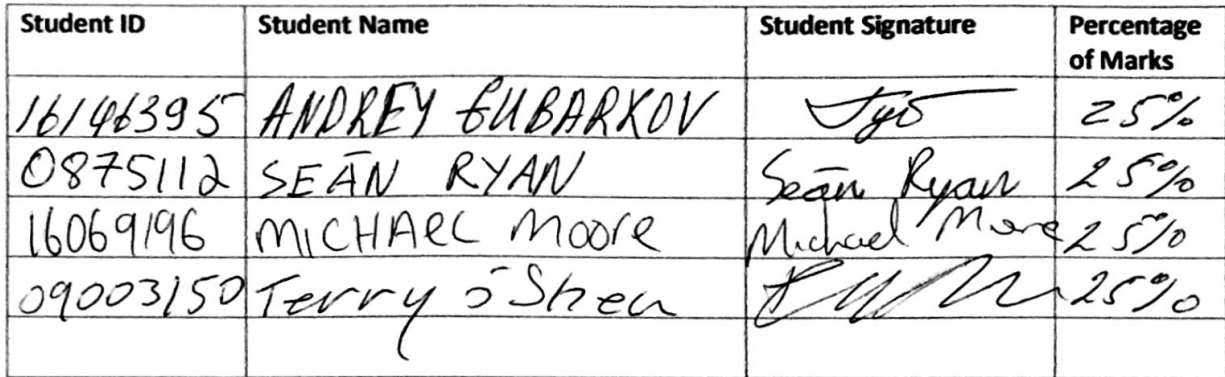 Student ID Student Name Student Signature Percentage of Marks
16146395 ANDREY GUBARKOV 25%
0875112 SEÁN RYAN Seán Ryan 25%
16069196 MICHAEL MOORE Michael Moore 25%
09003150 Terry O'Shea 25%